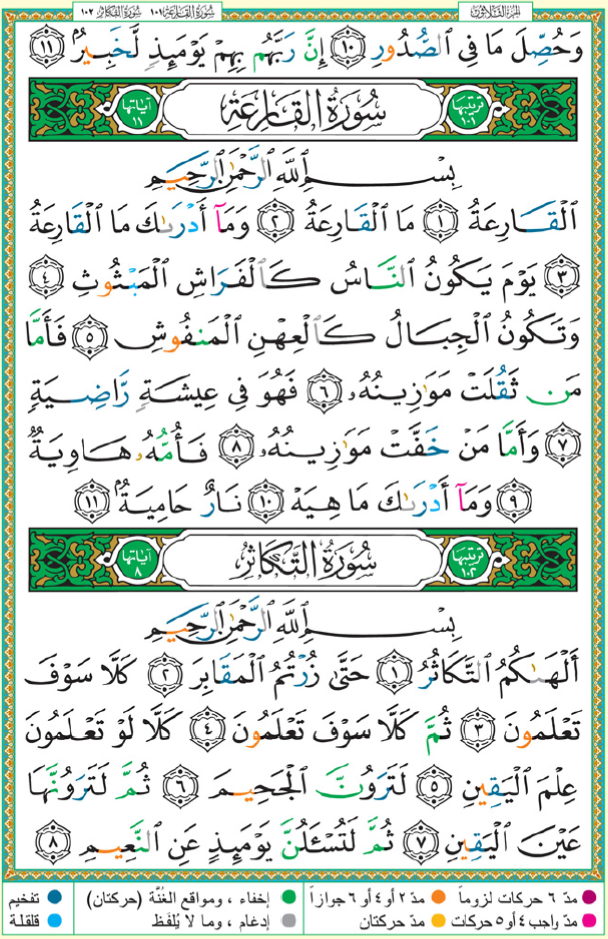 الجزء الثلاثون سورة القارعة ١٠١ سورة التكاثر ١٠٢
وَحُصِّلَ مَا فِى ٱلصُّدُورِ ١٠ إِنَّ رَبَّهُم بِهِمْ يَوْمَئِذٍ لَّخَبِيرٌۢ ١١
ترتيبها ١٠١ سُورَةُ القَارِعَةِ آياتها ١١
بِسْمِ ٱللَّهِ ٱلرَّحْمَٰنِ ٱلرَّحِيمِ
ٱلْقَارِعَةُ ١ مَا ٱلْقَارِعَةُ ٢ وَمَآ أَدْرَىٰكَ مَا ٱلْقَارِعَةُ
٣ يَوْمَ يَكُونُ ٱلنَّاسُ كَٱلْفَرَاشِ ٱلْمَبْثُوثِ ٤
وَتَكُونُ ٱلْجِبَالُ كَٱلْعِهْنِ ٱلْمَنفُوشِ ٥ فَأَمَّا
مَن ثَقُلَتْ مَوَٰزِينُهُۥ ٦ فَهُوَ فِى عِيشَةٍ رَّاضِيَةٍ
٧ وَأَمَّا مَنْ خَفَّتْ مَوَٰزِينُهُۥ ٨ فَأُمُّهُۥ هَاوِيَةٌ
٩ وَمَآ أَدْرَىٰكَ مَا هِيَهْ ١٠ نَارٌ حَامِيَةٌۢ ١١
ترتيبها ١٠٢ سُورَةُ التَّكَاثُرِ آياتها ٨
بِسْمِ ٱللَّهِ ٱلرَّحْمَٰنِ ٱلرَّحِيمِ
أَلْهَىٰكُمُ ٱلتَّكَاثُرُ ١ حَتَّىٰ زُرْتُمُ ٱلْمَقَابِرَ ٢ كَلَّا سَوْفَ
تَعْلَمُونَ ٣ ثُمَّ كَلَّا سَوْفَ تَعْلَمُونَ ٤ كَلَّا لَوْ تَعْلَمُونَ
عِلْمَ ٱلْيَقِينِ ٥ لَتَرَوُنَّ ٱلْجَحِيمَ ٦ ثُمَّ لَتَرَوُنَّهَا
عَيْنَ ٱلْيَقِينِ ٧ ثُمَّ لَتُسْـَٔلُنَّ يَوْمَئِذٍ عَنِ ٱلنَّعِيمِ ٨
مدّ ٦ حركات لزوماً مدّ ٢ أو ٤ أو ٦ جوازاً إخفاء ، ومواقع الغُنَّة (حركتان) تفخيم
مدّ واجب ٤ أو ٥ حركات مدّ حركتان إدغام ، وما لا يُلفَظ قلقلة